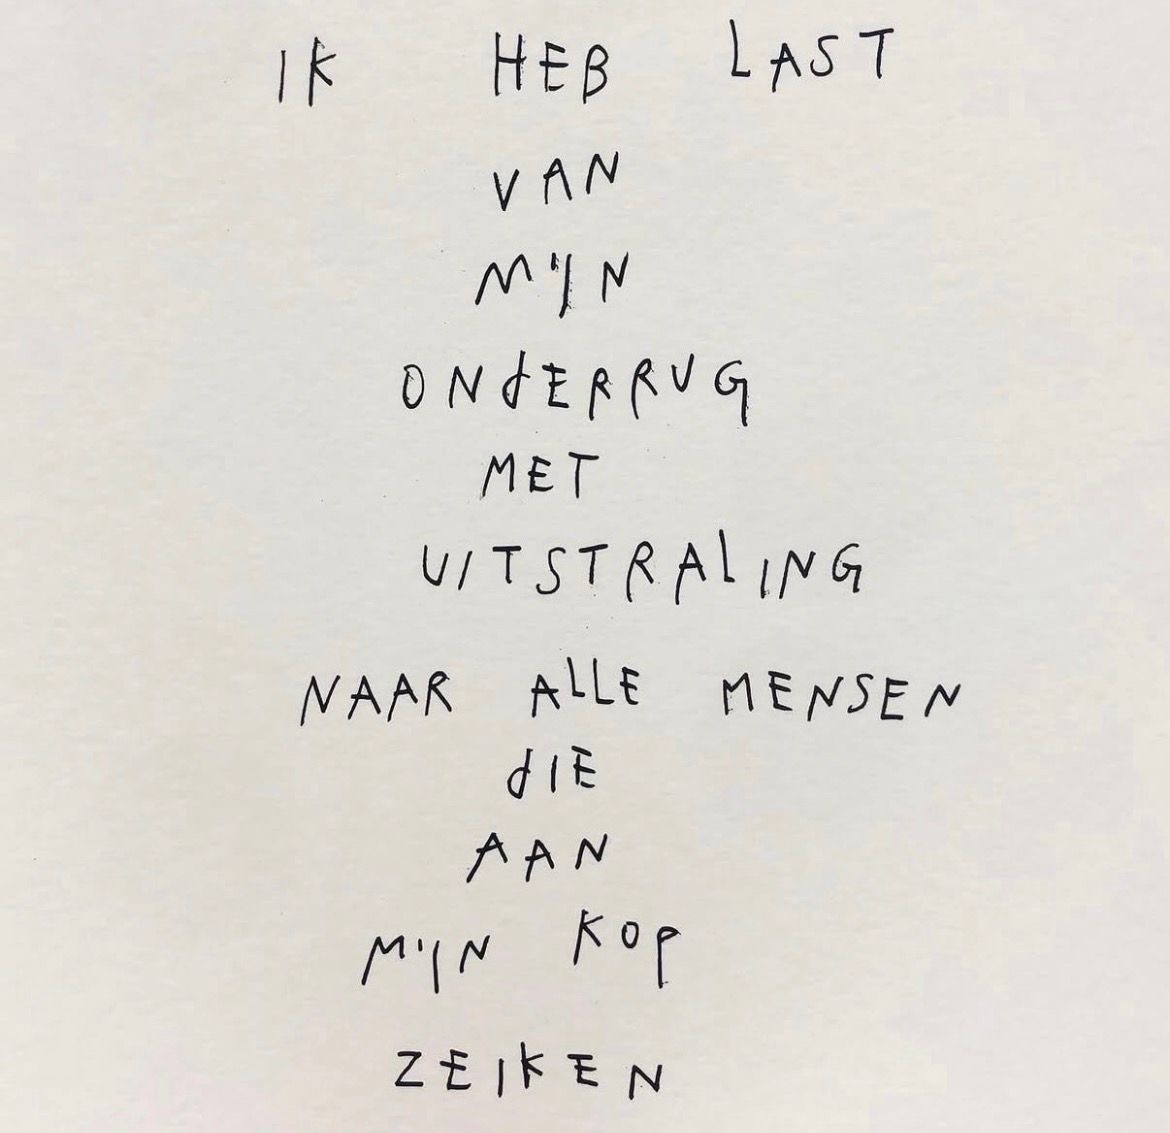 IK HEB LAST
VAN
MIJN
ONdERRUG
MET
UITSTRALING
NAAR ALLE MENSEN
dIE
AAN
MIJN KOP
ZEIKEN